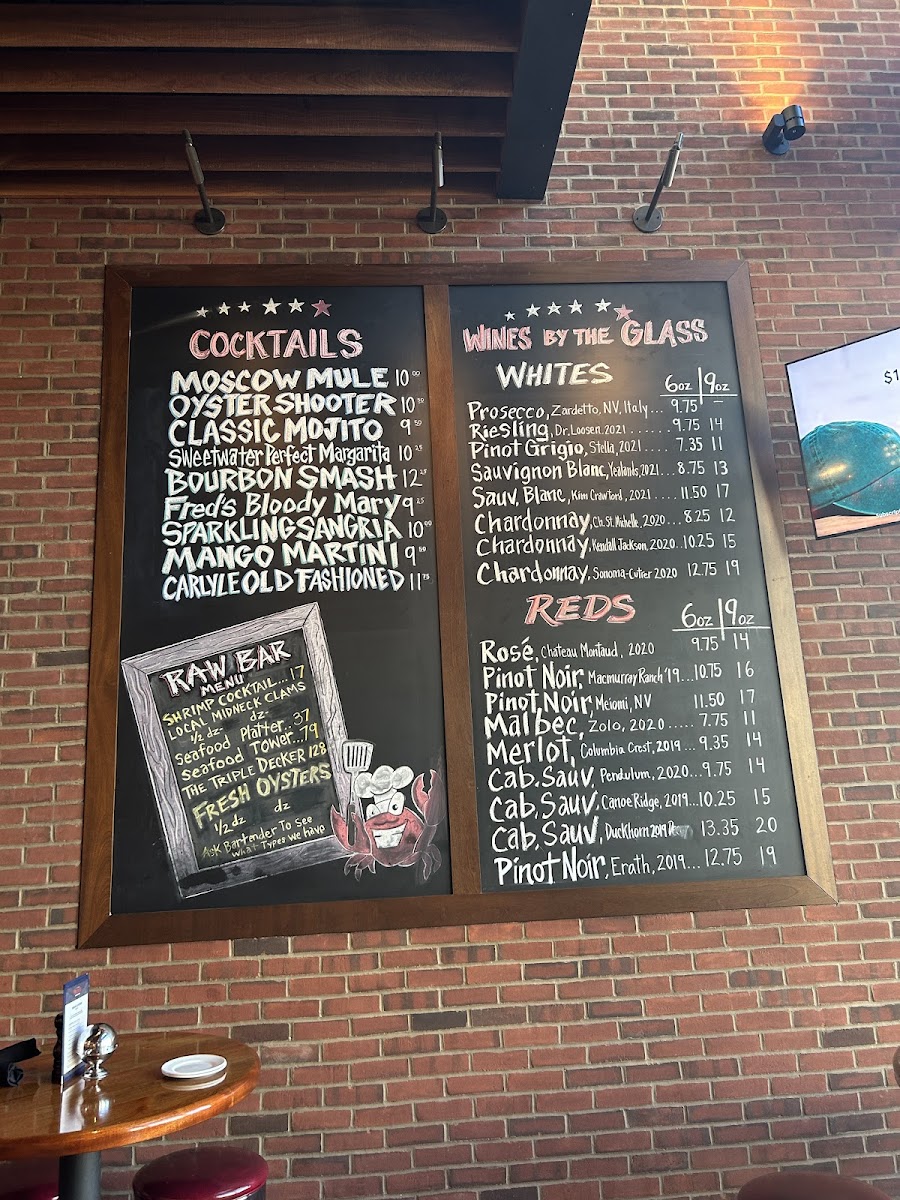 COCKTAILS
MOSCOW MULE 10.00
OYSTER SHOOTER 10.50
CLASSIC MOJITO 9.50
Sweetwater Perfect Margarita 10.25
BOURBON SMASH 12.25
Fred's Bloody Mary 9.25
SPARKLING SANGRIA 10.00
MANGO MARTINI 9.50
CARLYLE OLD FASHIONED 11.75
RAW BAR
MENU
SHRIMP COCKTAIL...17
LOCAL MIDNECK CLAMS
1/2 dz- dz-
Seafood Platter..37
Seafood Tower...79
THE TRIPLE DECKER 128
FRESH OYSTERS
1/2 dz dz
Ask Bartender To See
What Types We have
WINES BY THE GLASS
WHITES
6oz | 9oz
Prosecco, Zardetto, NV, Italy... 9.75 –
Riesling, Dr. Loosen, 2021 ...... 9.75 14
Pinot Grigio, Stella, 2021 .... 7.35 11
Sauvignon Blanc, Yealands, 2021... 8.75 13
Sauv. Blanc, Kim Crawford, 2021.... 11.50 17
Chardonnay, Ch. St. Michelle, 2020... 8.25 12
Chardonnay, Kendall Jackson, 2020.. 10.25 15
Chardonnay, Sonoma-Cutrer 2020 12.75 19
REDS
6oz | 9oz
Rosé, Chateau Montaud, 2020 9.75 14
Pinot Noir, Macmurray Ranch '19...10.75 16
Pinot Noir, Meiomi, NV 11.50 17
Malbec, Zolo, 2020..... 7.75 11
Merlot, Columbia Crest, 2019... 9.35 14
Cab. Sauv, Pendulum, 2020...9.75 14
Cab. Sauv, Canoe Ridge, 2019...10.25 15
Cab. Sauv, Duckhorn 2019 13.35 20
Pinot Noir, Erath, 2019... 12.75 19
$1